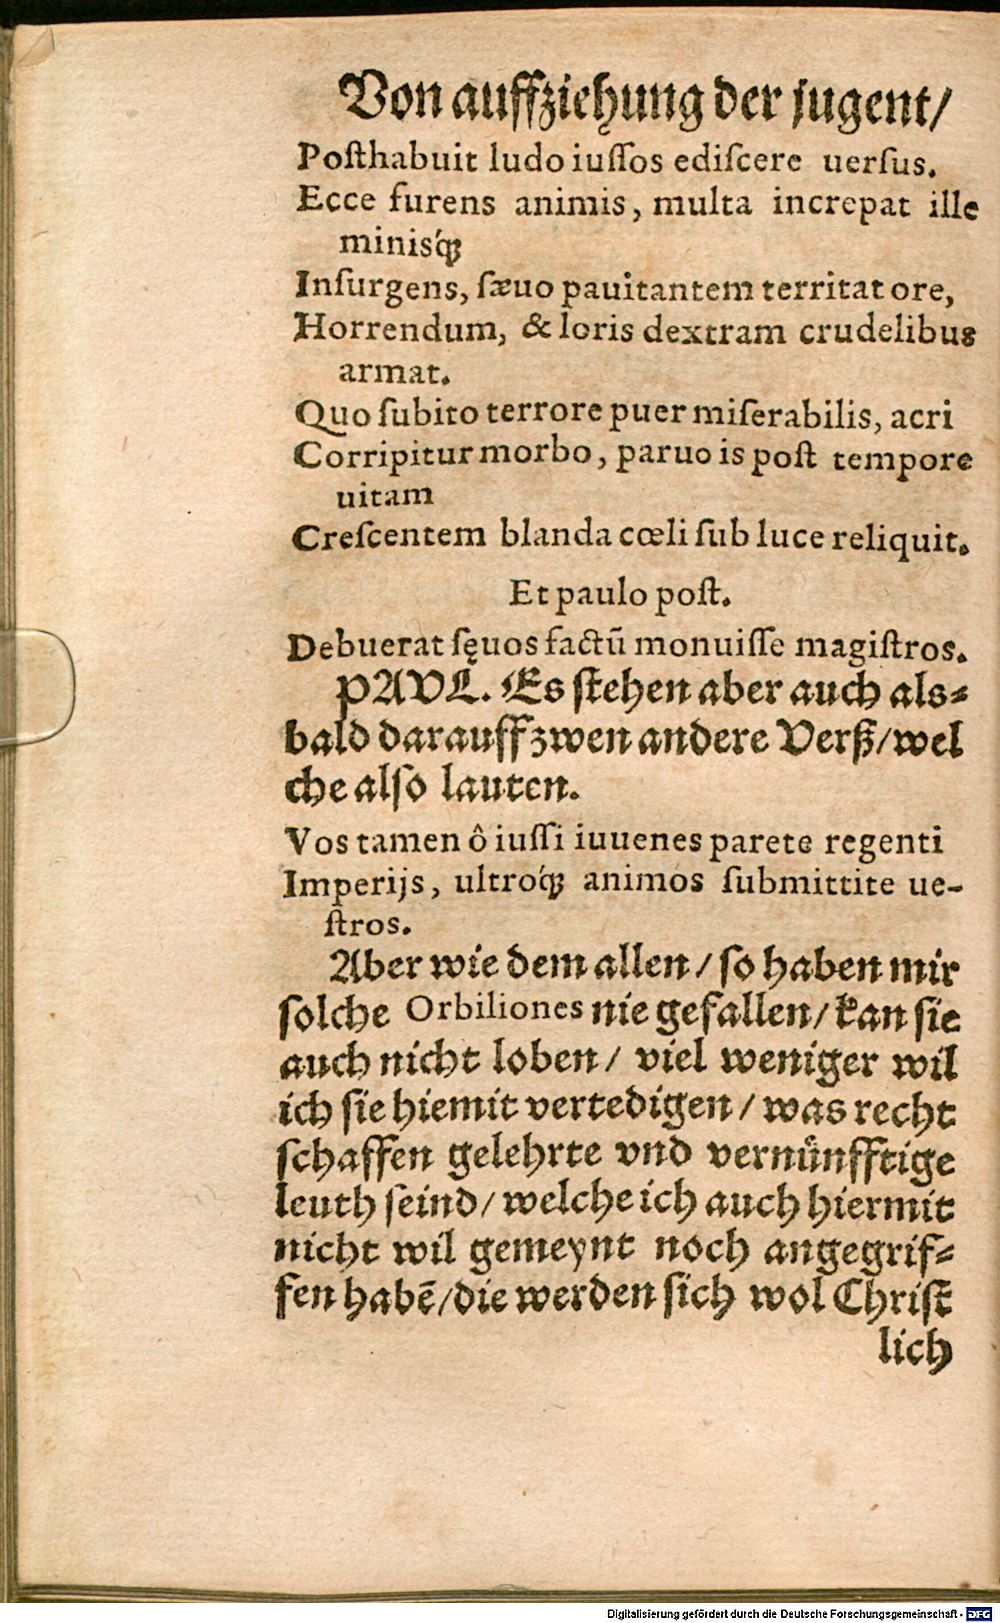 Von auffziehung der jugent/
Posthabuit ludo iuſſos ediſcere uerſus.
Ecce furens animis, multa increpat ille
minisq́ꝫ
Inſurgens, ſæuo pauitantem territat ore,
Horrendum, & loris dextram crudelibus
armat.
Quo ſubito terrore puer miſerabilis, acri
Corripitur morbo, paruo is poſt tempore
uitam
Creſcentem blanda cœli ſub luce reliquit.
Et paulo poſt.
Debuerat ſęuos factũ monuiſſe magiſtros.
PAVL. Es ſtehen aber auch als⸗
bald darauff zwen andere Verß/wel
che alſo lauten.
Vos tamen ô iuſſi iuuenes parete regenti
Imperijs, ultroq́ꝫ animos ſubmittite ue-
ſtros.
Aber wie dem allen/ ſo haben mir
ſolche Orbiliones nie gefallen/ kan ſie
auch nicht loben/ viel weniger wil
ich ſie hiemit vertedigen/ was recht
ſchaffen gelehrte vnd vernuͤnfftige
leuth ſeind/ welche ich auch hiermit
nicht wil gemeynt noch angegrif⸗
fen habẽ/die werden ſich wol Chriſt
lich
Digitalisierung gefördert durch die Deutsche Forschungsgemeinschaft - DFG